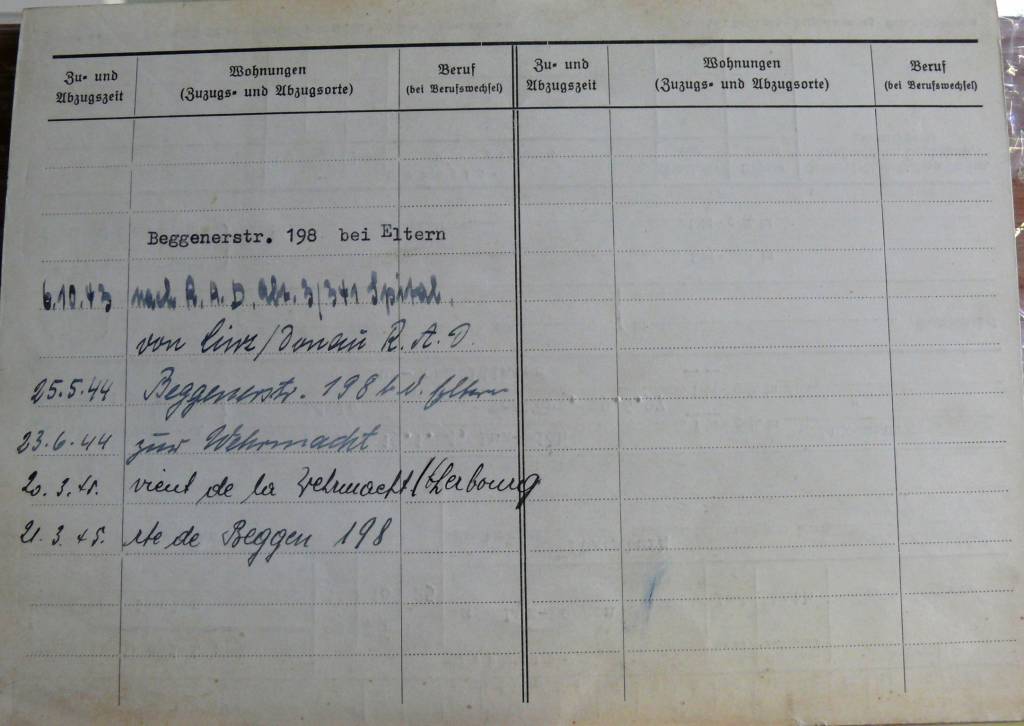 Zu- und
Abzugszeit
Wohnungen
(Zuzugs- und Abzugsorte)
Beruf
(bei Berufswechsel)
Zu- und
Abzugszeit
Wohnungen
(Zuzugs- und Abzugsorte)
Beruf
(bei Berufswechsel)
Beggenerstr. 198 bei Eltern
6.10.43 nach R.A.D. Abt. 3/341 Spital.
von Linz/Donau R.A.D.
25.5.44 Beggenerstr. 198 b. d. Eltern
23.6.44 zur Wehrmacht
20.3.45. vient de la Wehrmacht (Cherbourg
21.3.45. rte de Beggen 198